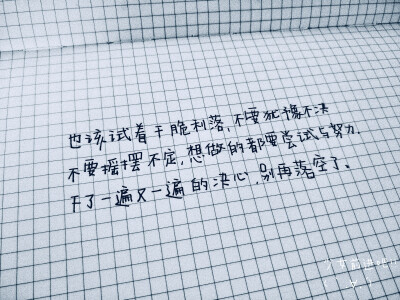 也该试着干脆利落,不要犹豫不决
不要摇摆不定,想做的都要尝试与努力.
下了一遍又一遍的决心,别再落空了。